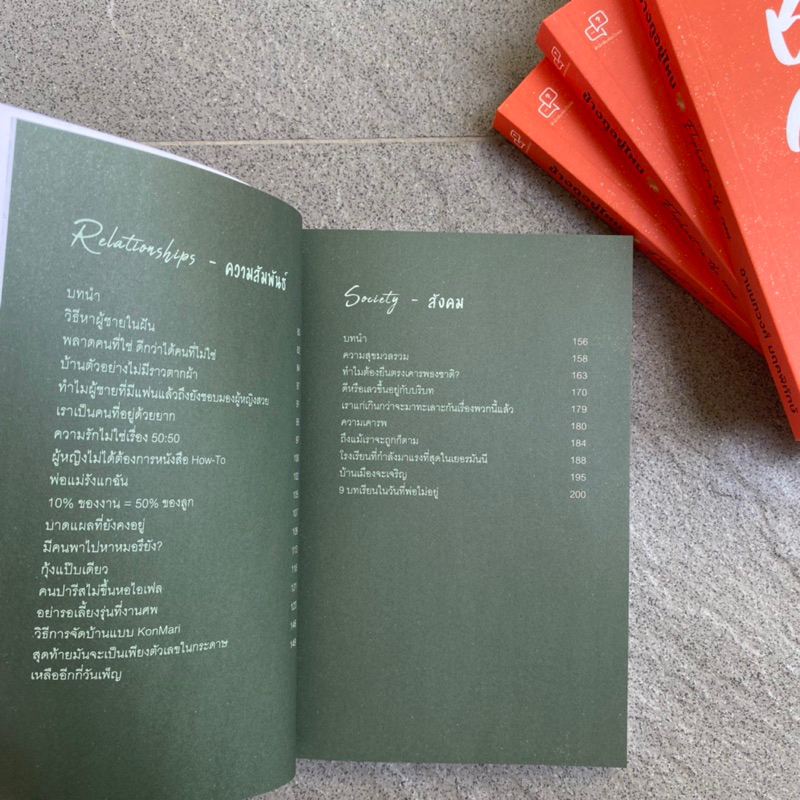 Relationships - ความสัมพันธ์
บทนำ
วิธีหาผู้ชายในฝัน
พลาดคนที่ใช่ ดีกว่าได้คนที่ไม่ใช่
บ้านตัวอย่างไม่มีราวตากผ้า
ทำไมผู้ชายที่มีแฟนแล้วถึงยังชอบมองผู้หญิงสวย
เราเป็นคนที่อยู่ด้วยยาก
ความรักไม่ใช่เรื่อง 50:50
ผู้หญิงไม่ได้ต้องการหนังสือ How-To
พ่อแม่รังแกฉัน
10% ของงาน = 50% ของลูก
บาดแผลที่ยังคงอยู่
มีคนพาไปหาหมอรึยัง?
กุ้งแป๊บเดียว
คนปารีสไม่ขึ้นหอไอเฟล
อย่ารอเลี้ยงรุ่นที่งานศพ
วิธีการจัดบ้านแบบ KonMari
สุดท้ายมันจะเป็นเพียงตัวเลขในกระดาษ
เหลืออีกกี่วันเพ็ญ
Society - สังคม
บทนำ 156
ความสุขมวลรวม 158
ทำไมต้องยืนตรงเคารพธงชาติ? 163
ดีหรือเลวขึ้นอยู่กับบริบท 170
เราแก่เกินกว่าจะมาทะเลาะกันเรื่องพวกนี้แล้ว 179
ความเคารพ 180
ถึงแม้เราจะถูกก็ตาม 184
โรงเรียนที่กำลังมาแรงที่สุดในเยอรมันนี 188
บ้านเมืองจะเจริญ 195
9 บทเรียนในวันที่พ่อไม่อยู่ 200
ช้างกูอยู่ไหน
ช้างกูอยู่ไหน